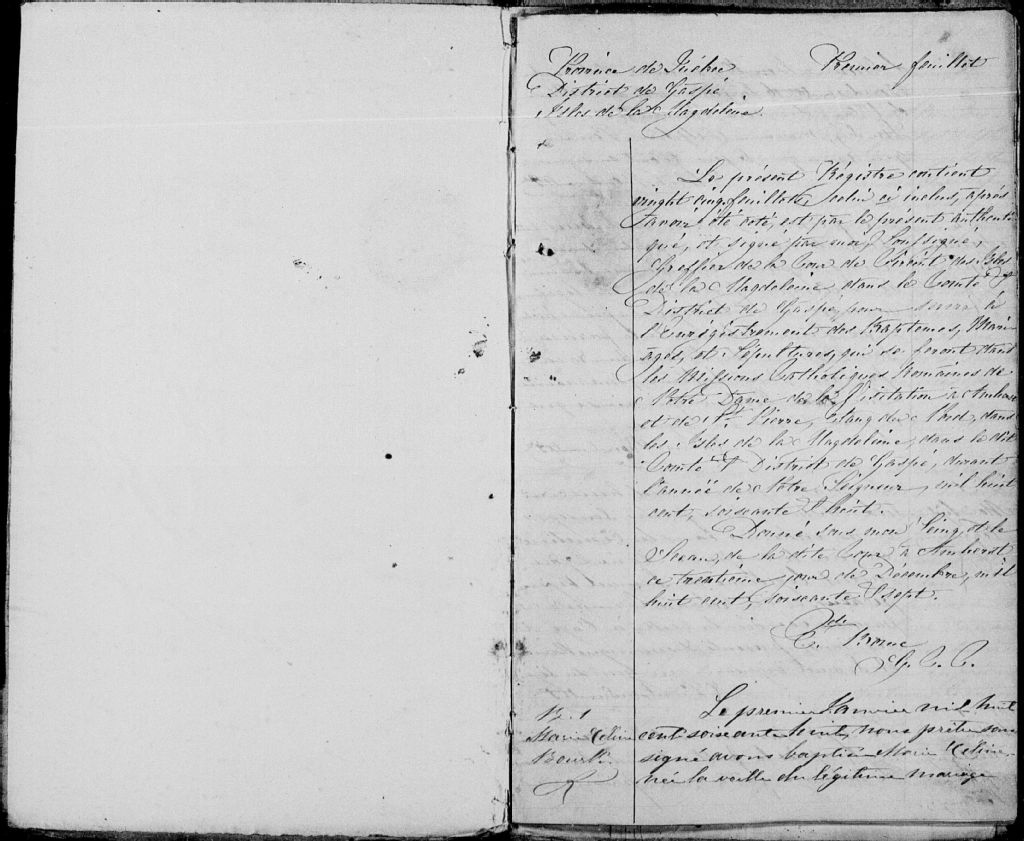 Province de Québec Premier feuillet
District de Gaspé
Isles de la Magdeleine.
Le présent Régistre contient
vinght cinq feuillets, celui ci inclus, après
avoir été coté, est par le présent authenti
qué, et signé par moi, Soussigné,
Greffier de la Cour de Circuit des Isles
de la Magdeleine dans le Comté &
District de Gaspé, pour servir à
l'Enrégistrement des Baptemes, Mari
ages, et Sépultures, qui se feront dans
les Missions Catholiques Romaines de
Notre Dame de la Visitation à Amherst
et de St. Pierre, Etang du Nord, dans
les Isles de la Magdeleine, dans le dit
Comté & District de Gaspé, durant
l'année de Notre Seigneur, mil huit
cent, soissante & huit.
Donné sous mon Seing et le
Sceau, de la dite Cour à Amherst
ce trentième jour de Décembre, mil
huit cent, soissante & sept.
G. C. C.
B. 1
Marie Céline
Bourk.
Le premier Janvier mil huit
cent soissante huit, nous prêtre sous
signé avons baptisé Marie Céline
née la veille du légitime mariage